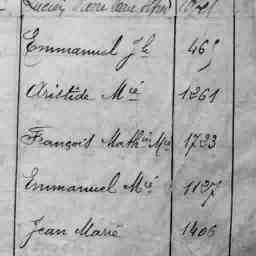 Emmanuel Jh 465
Aristide Mié 1261
François Mathieu Mié 1733
Emmanuel Mié 1127
Jean Marié 1406